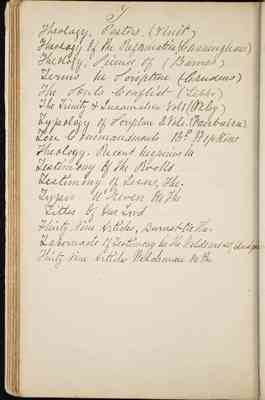 T
Theology, Pastoral (Vinet)
Theology of the Reformation (Cunningham)
Theology, Science of (Barnes)
Terms in Scripture (Cruden)
The Souls Conflict (Sibbs)
The Trinity & Incarnation Vol 1 (Oxlee)
Typology of Scripture 2 Vols. (Fairbairn)
Ten Commandments Bp Hopkins
Theology. Recent Inquiries in
Testimony of the Rocks
Testimony of Jesus, The.
Types
Titles of Our Lord
Thirty Nine Articles, Burnet on the.
Tabernacle of Testimony in the Wilderness,
Thirty Nine Articles on the